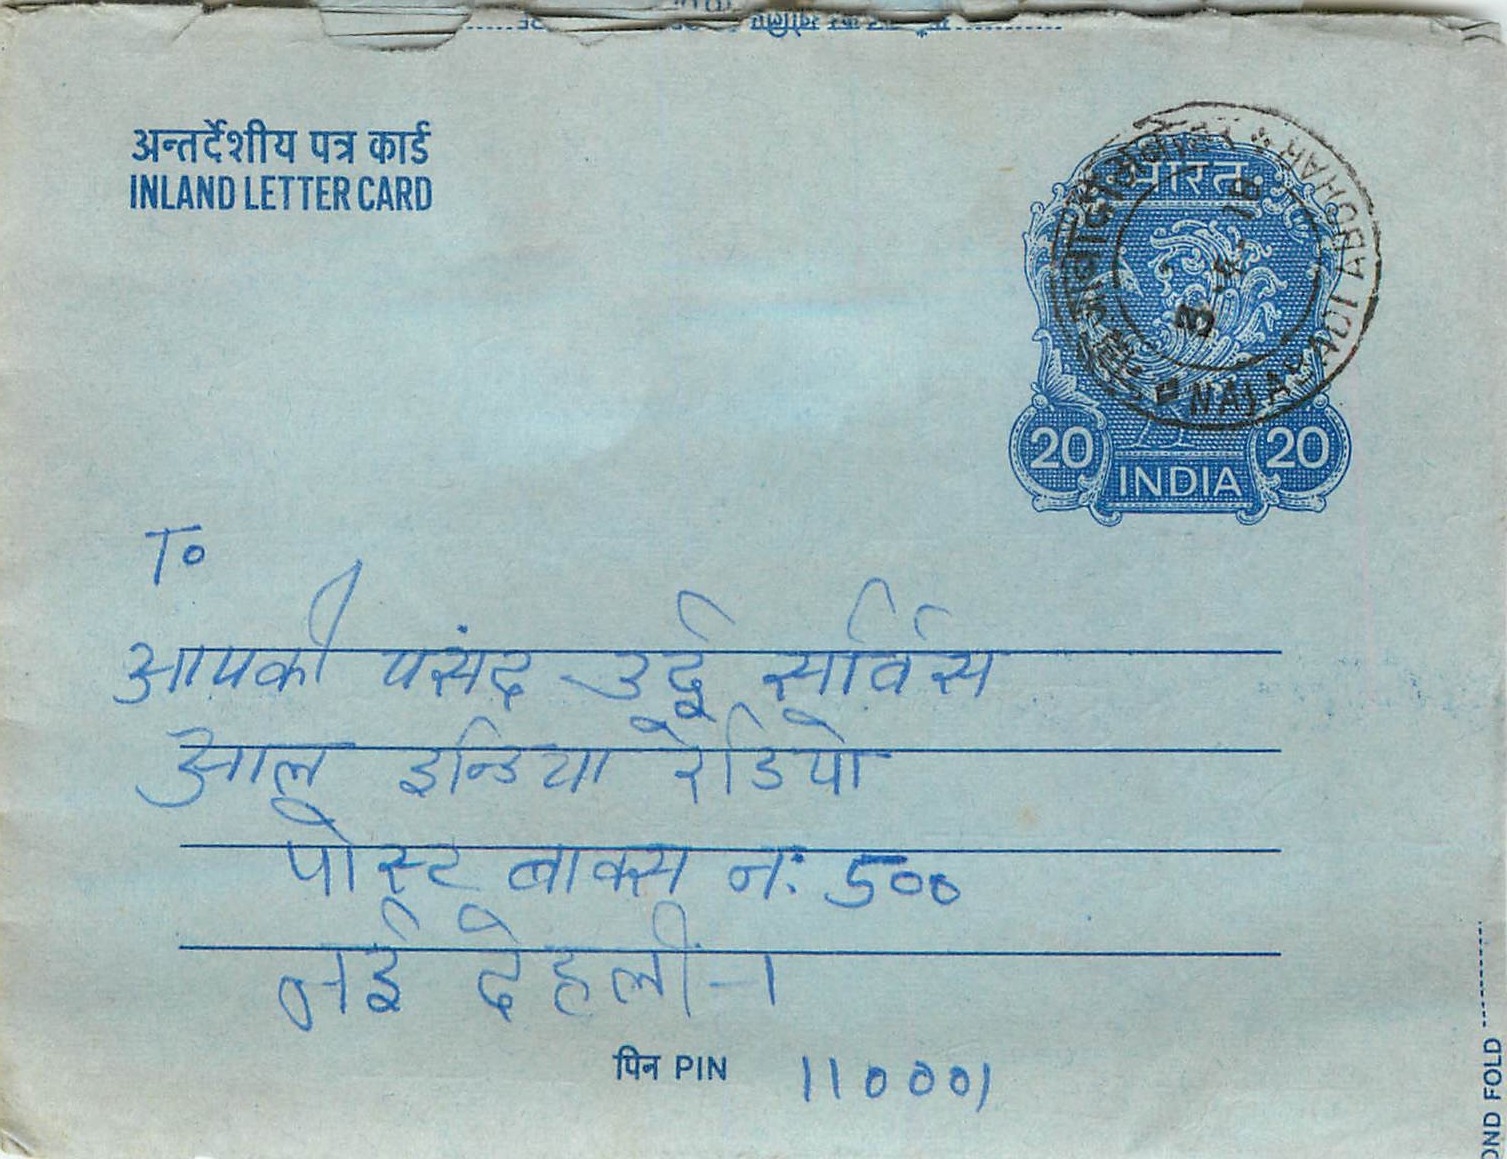 अन्तर्देशीय पत्र कार्ड
INLAND LETTER CARD
भारत
ABOHAR
20 INDIA 20
To
आपकी पसंद उर्दू सर्विस
आल इन्डिया रेडियो
पोस्ट बाक्स नः 500
नई देहली-1
पिन PIN 110001
FOLD